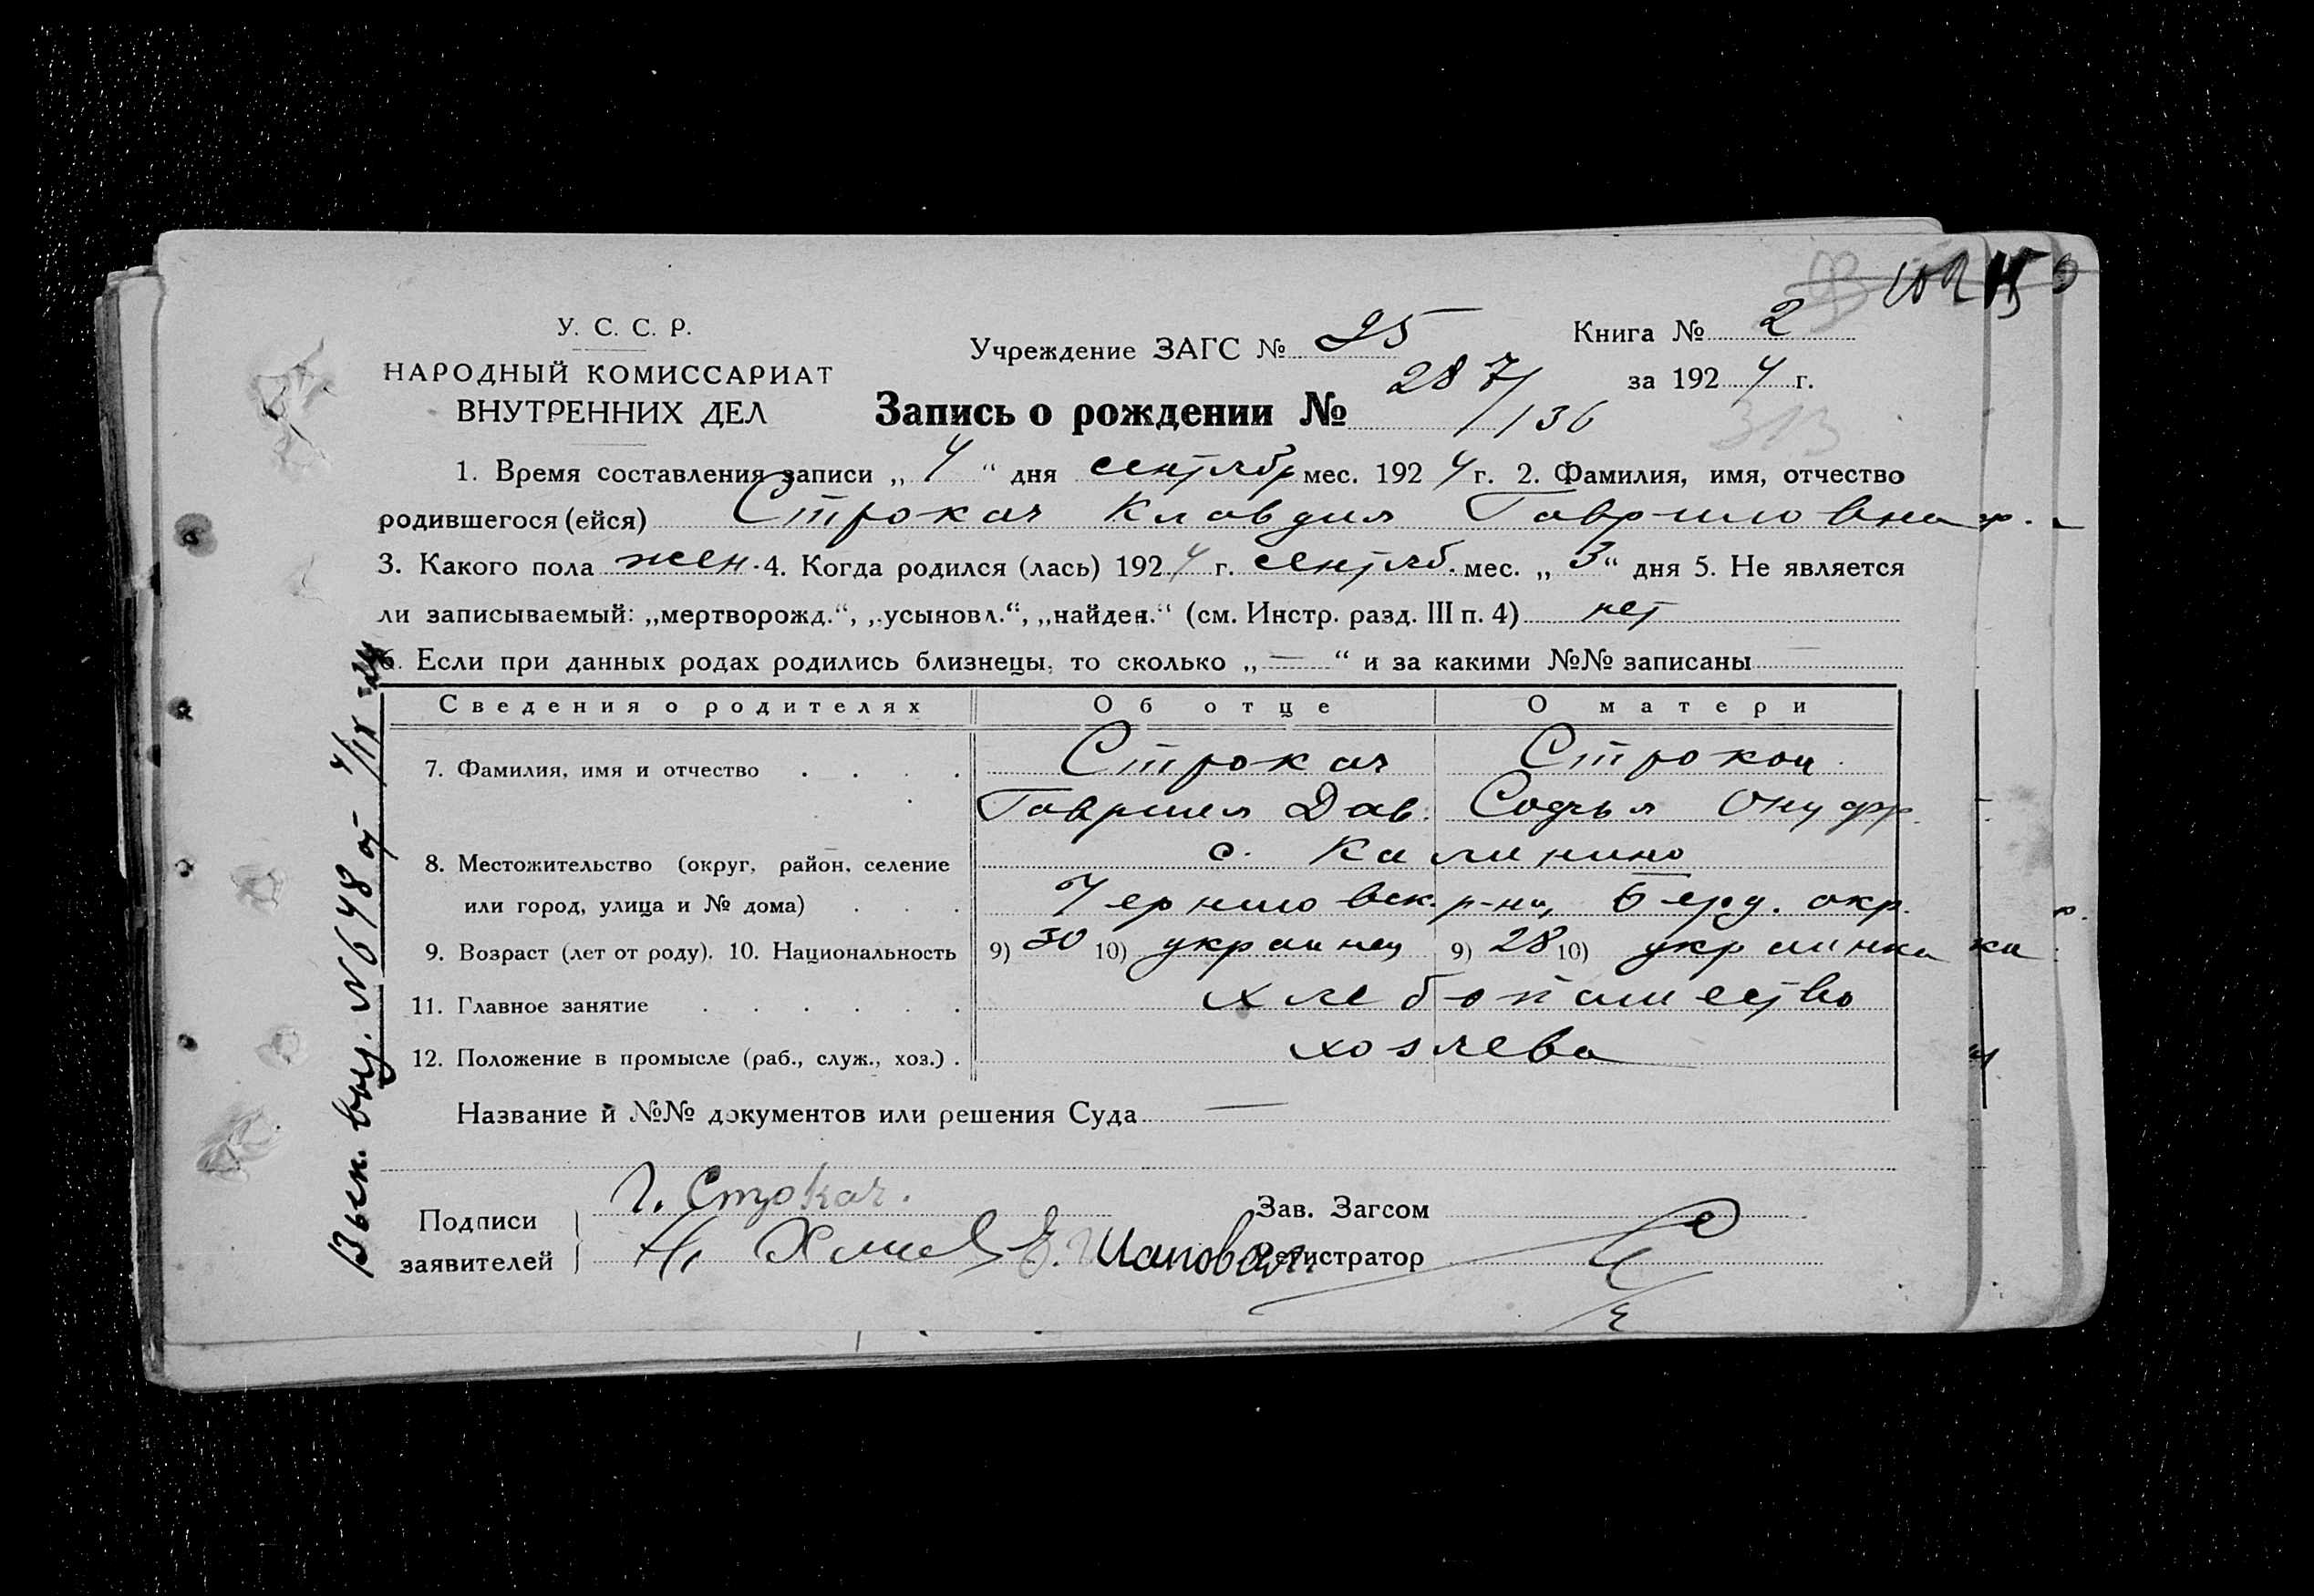 У. С. С. Р.
НАРОДНЫЙ КОМИССАРИАТ
ВНУТРЕННИХ ДЕЛ
Учреждение ЗАГС № 25
Книга № 2
за 1924 г.
Запись о рождении № 287/136
313
1. Время составления записи „4“ дня сентябр мес. 1924 г. 2. Фамилия, имя, отчество
родившегося (ейся) Строкач Клавдия Гавриловна
3. Какого пола жен. 4. Когда родился (лась) 1924 г. сентяб. мес. „3“ дня 5. Не является
ли записываемый: „мертворожд.“, „усыновл.“, „найден.“ (см. Инстр. разд. III п. 4) нет
6. Если при данных родах родились близнецы, то сколько „—“ и за какими №№ записаны —
Сведения о родителях Об отце О матери
7. Фамилия, имя и отчество . . . . Строкач Строкач
Гавриил Дав. Софья Онуфр.
8. Местожительство (округ, район, селение с. Калинино
или город, улица и № дома) . . . Черниговск. р-на, Берд. окр.
9. Возраст (лет от роду). 10. Национальность 9) 30 10) украинец 9) 28 10) украинка
11. Главное занятие . . . . . . хлебопашество
12. Положение в промысле (раб., служ., хоз.) . хозяева
Название и №№ документов или решения Суда —
Подписи заявителей
Г. Строкач.
Шаповал
Зав. Загсом
Регистратор
№ 648 от 4/IX-24